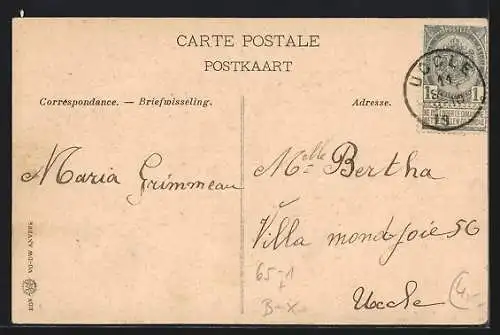 CARTE POSTALE
POSTKAART
Correspondance. — Briefwisseling.
Adresse.
UCCLE
11
19
1 1
Maria Grimmeau
Melle Bertha
Villa mondjoie 56
Uccle
65-1
+
B-X